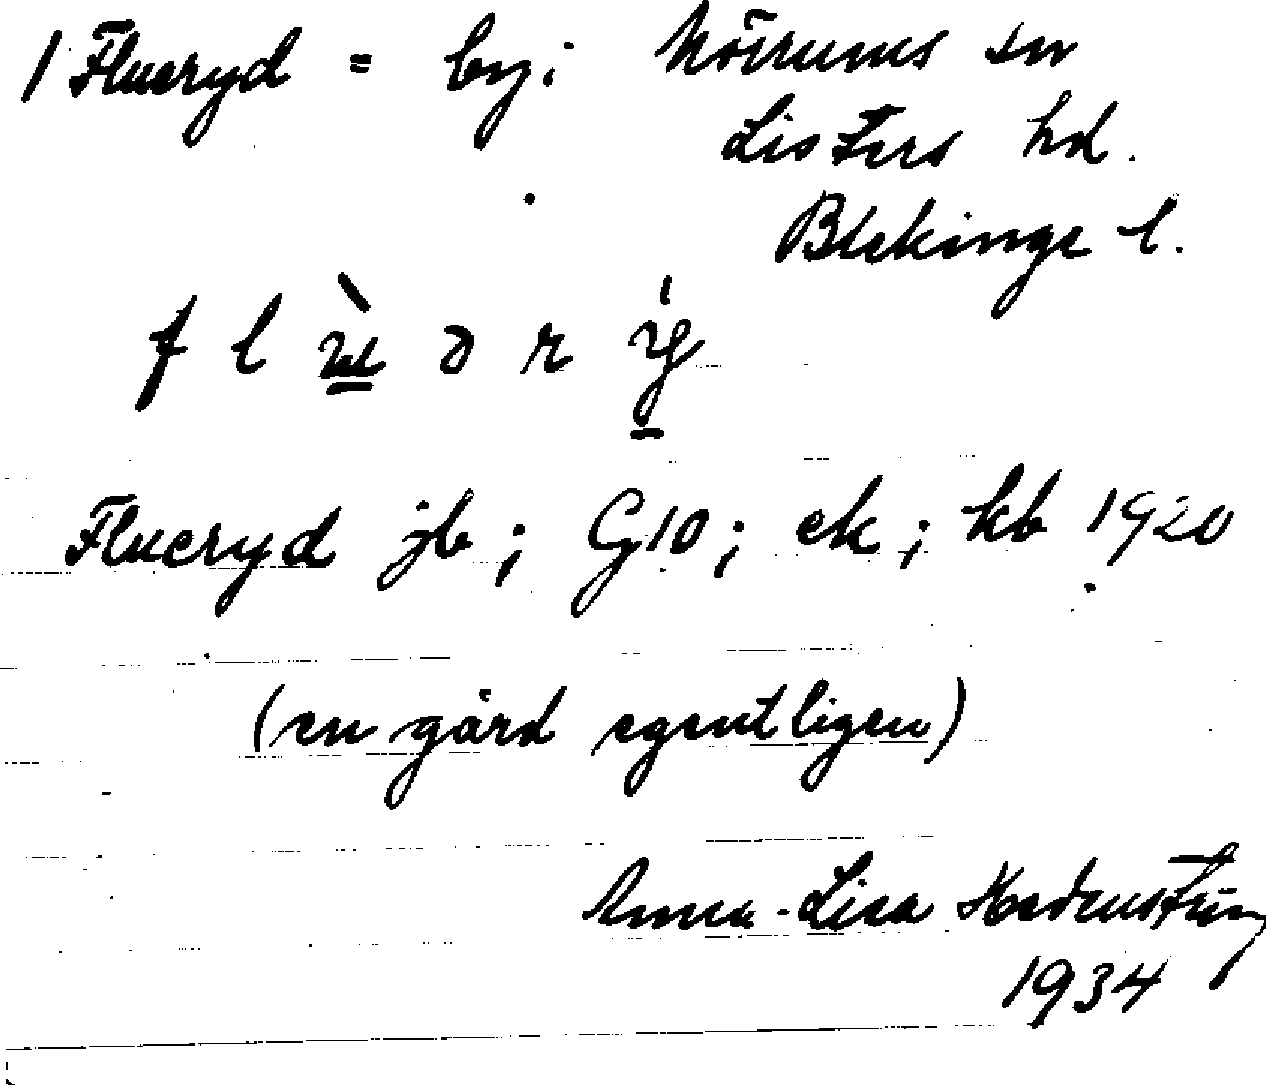 1 Flueryd = by; Mörrums sn
Listers hd.
Blekinge l.
Flueryd jb; G10; ek; kb 1920
(en gård egentligen)
Anna-Lisa
1934